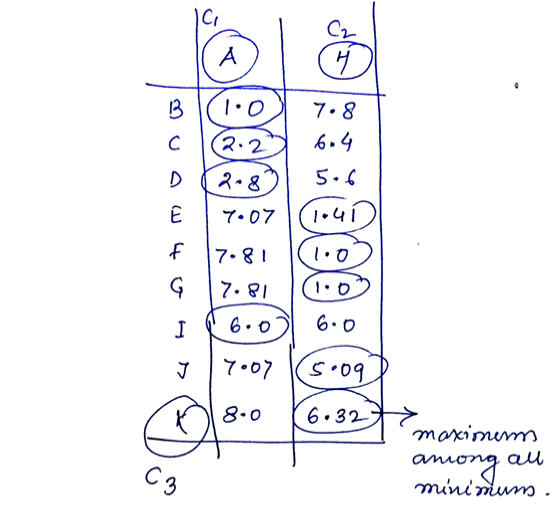 C1 C2
A H
B 1.0 7.8
C 2.2 6.4
D 2.8 5.6
E 7.07 1.41
F 7.81 1.0
G 7.81 1.0
I 6.0 6.0
J 7.07 5.09
K 8.0 6.32
C3
maximum
among all
minimums.